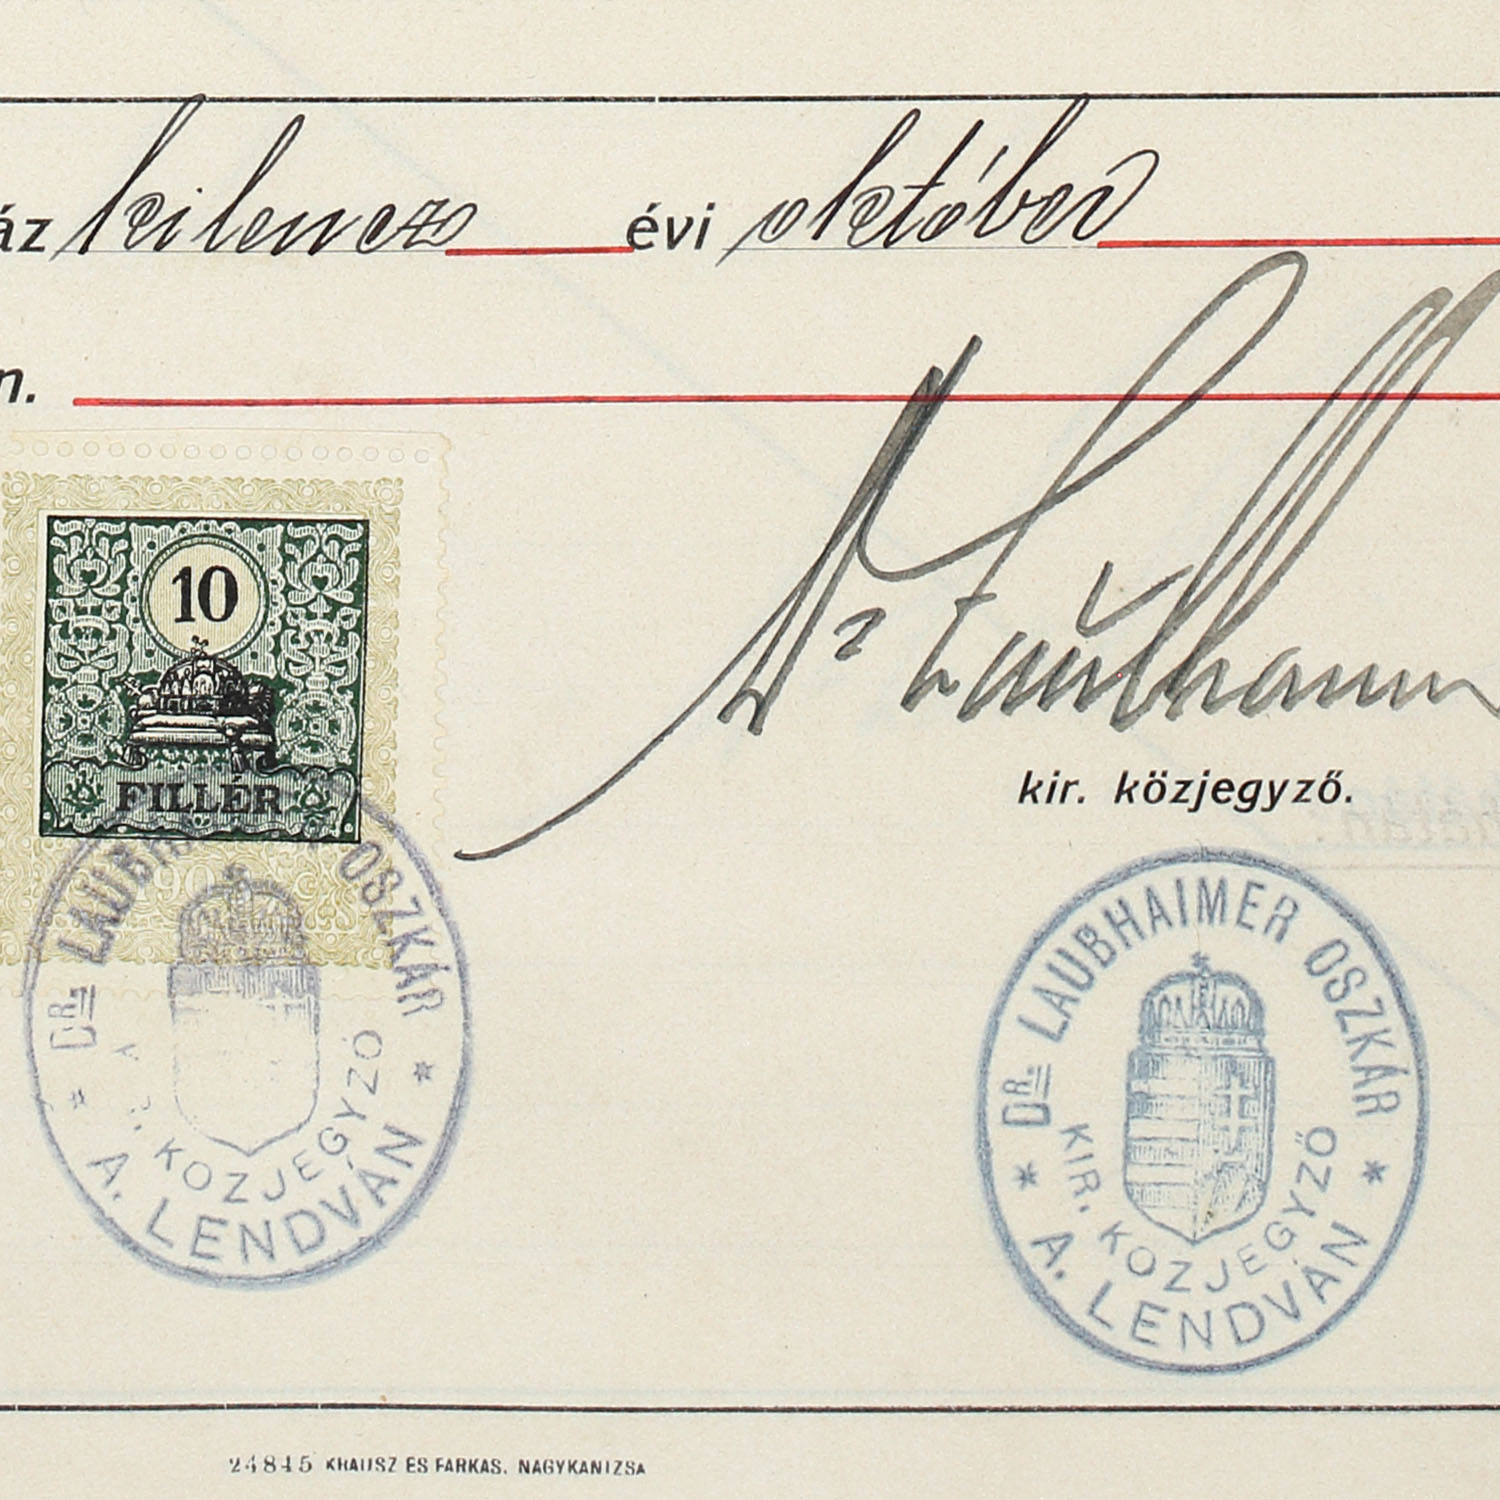 áz kilencz évi október
n.
10
FILLÉR
Dr Laubhaim
kir. közjegyző.
DR. LAUBH OSZKÁR
KÖZJEGYZŐ
A. LENDVÁN
DR. LAUBHAIMER OSZKÁR
KIR. KÖZJEGYZŐ
A. LENDVÁN
24845 KRAUSZ ÉS FARKAS, NAGYKANIZSA